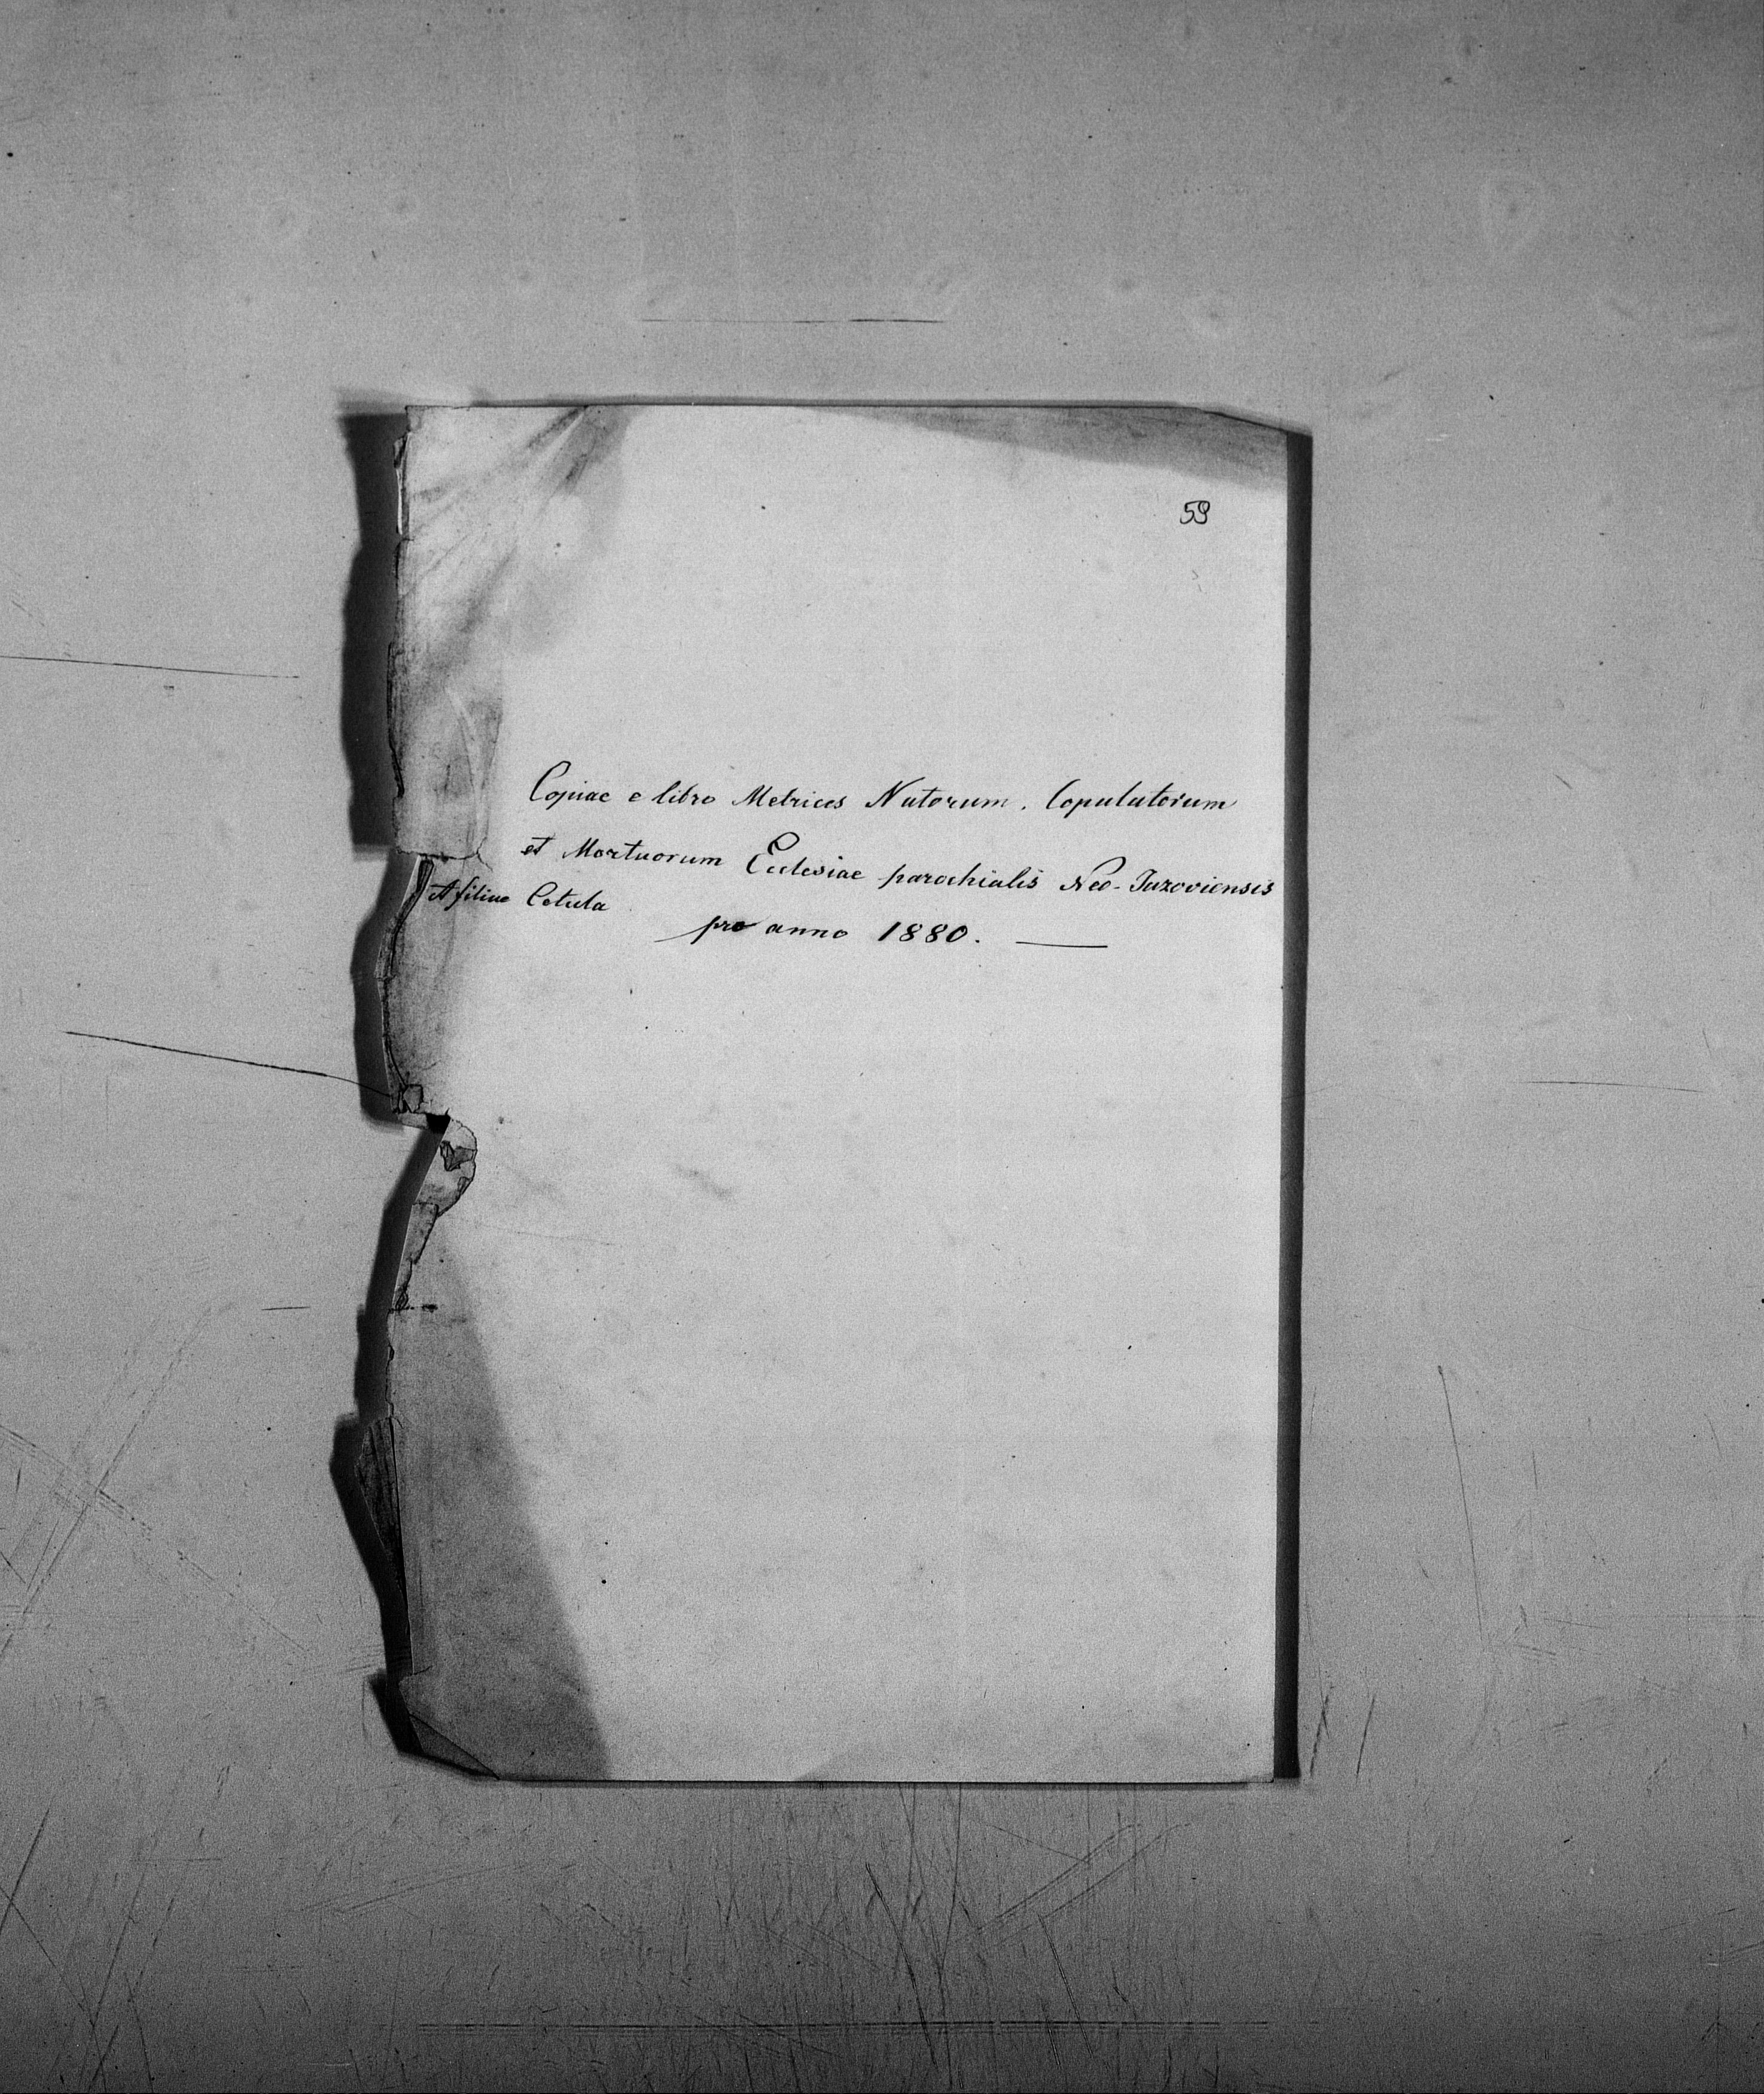 59
Copiae e libro Metrices Natorum, Copulatorum
et Mortuorum Ecclesiae parochialis Neo-Jazoviensis
et filiae Cetula
pro anno 1880.